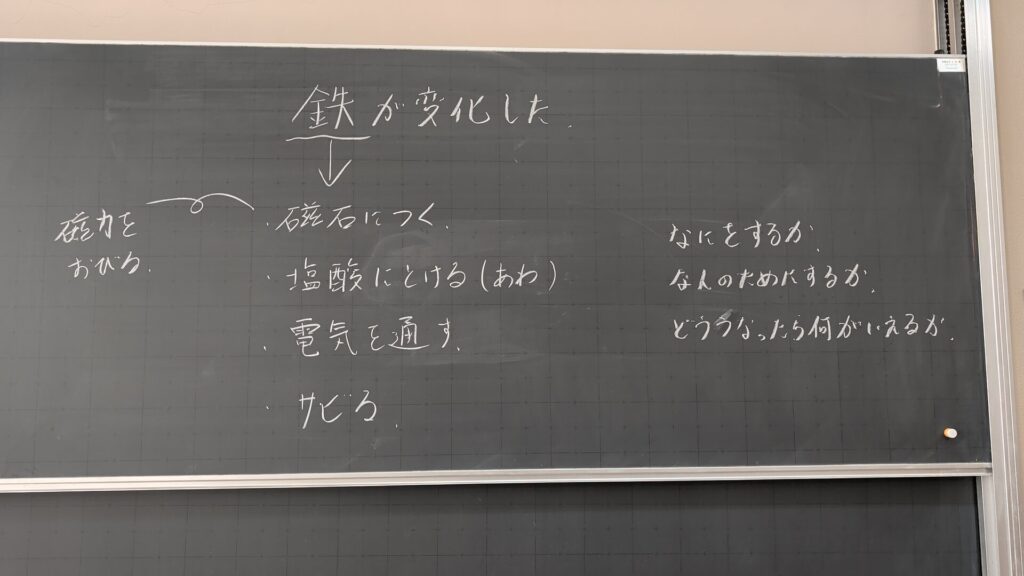 鉄が変化した.
磁力を
おびる.
・磁石につく.
・塩酸にとける(あわ)
・電気を通す.
・サビる.
なにをするか.
なんのためにするか.
どううなったら何がいえるか.